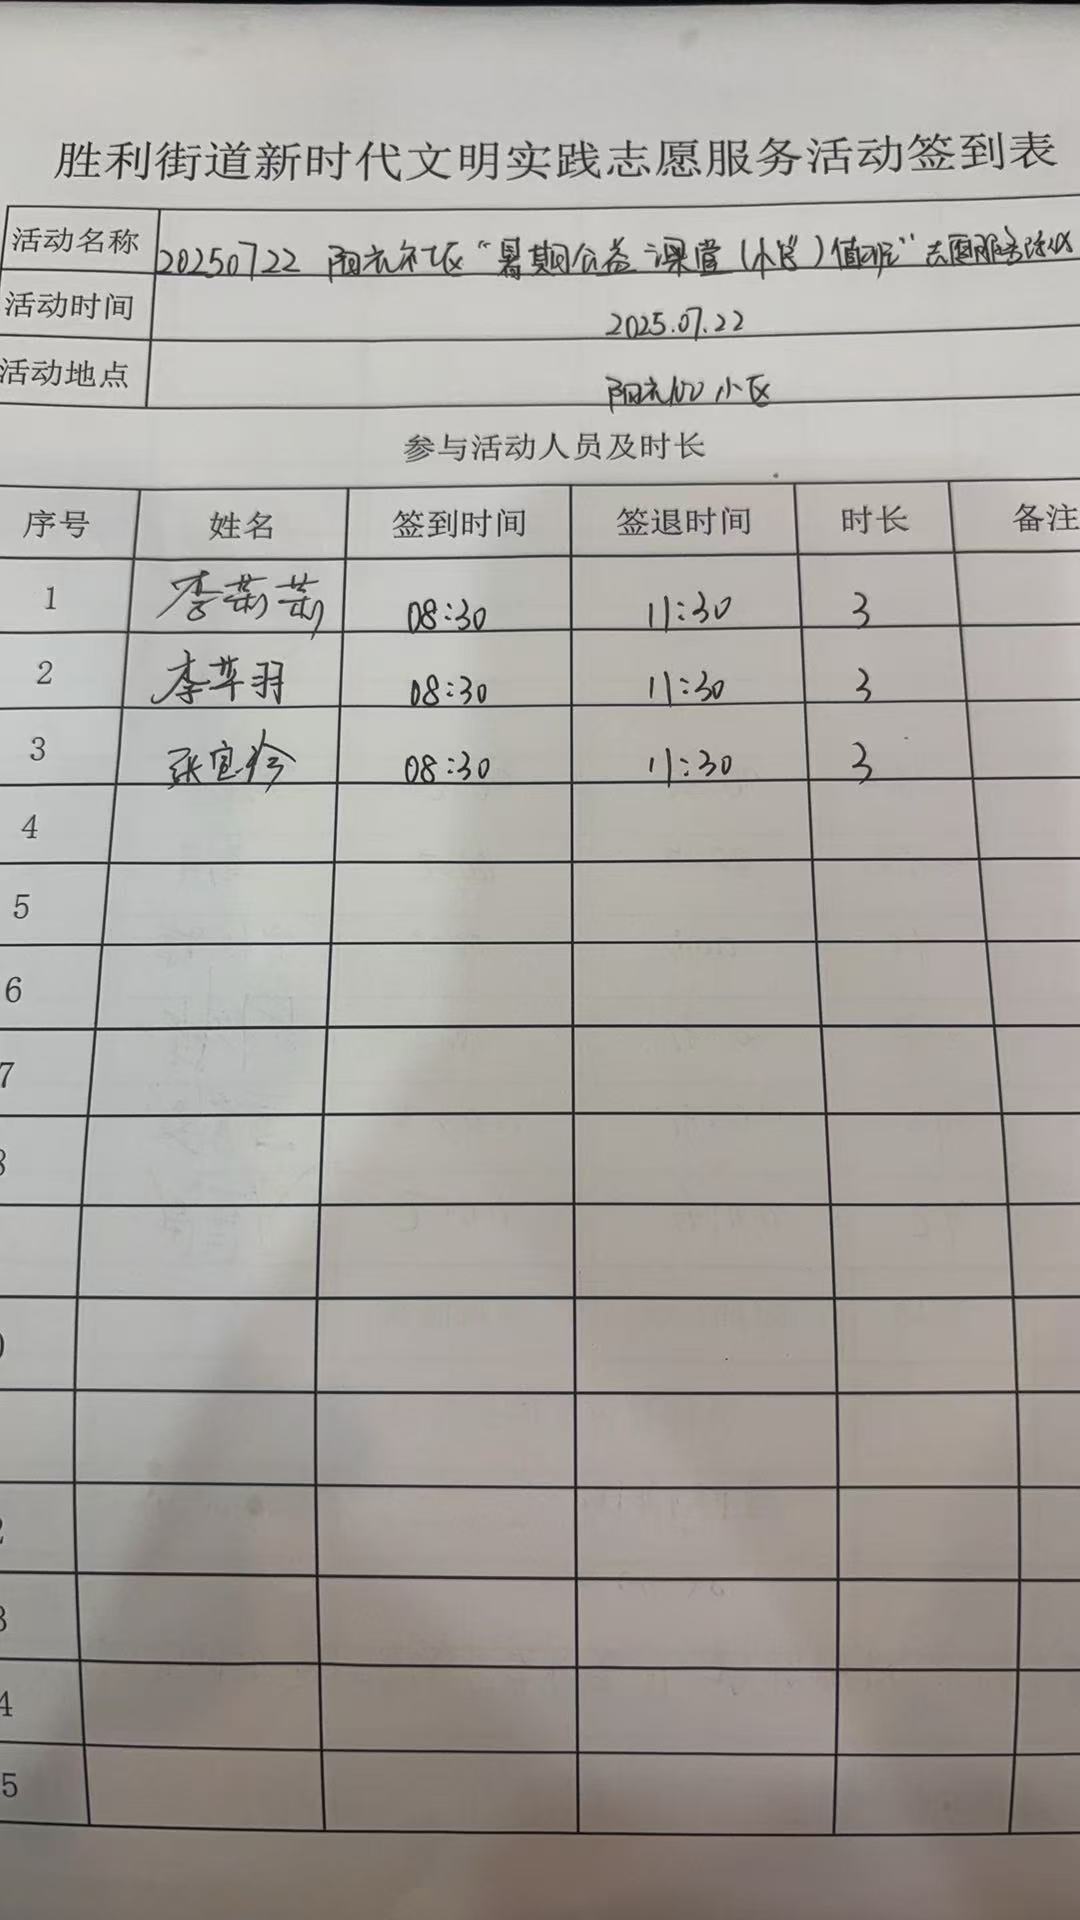 胜利街道新时代文明实践志愿服务活动签到表
活动名称 20250722 阳光社区“暑期公益课堂(小学)值班”志愿服务活动
活动时间 2025.07.22
活动地点 小区
参与活动人员及时长
序号 姓名 签到时间 签退时间 时长 备注
1 李茹茹 08:30 11:30 3
2 李草羽 08:30 11:30 3
3 张宜玲 08:30 11:30 3
4
5
6
7
8
0
2
3
4
5